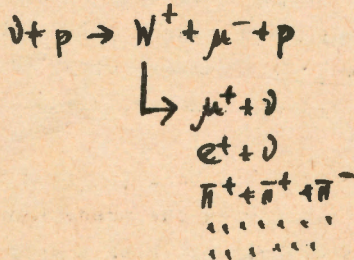 ν + p → W⁺ + μ⁻ + p
↳ μ⁺ + ν
e⁺ + ν
π⁺ + π⁺ + π⁻
. . . . . . .
. . . . . . .